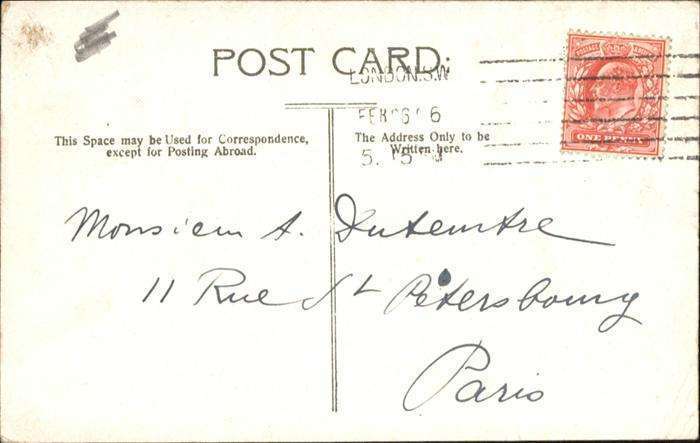 POST CARD.
LONDON.S.W
FEB 26 06
5.15
POSTAGE REVENUE
ONE PENNY
This Space may be Used for Correspondence,
except for Posting Abroad.
The Address Only to be
Written here.
Monsieur A.
11 Rue St Petersbourg
Paris